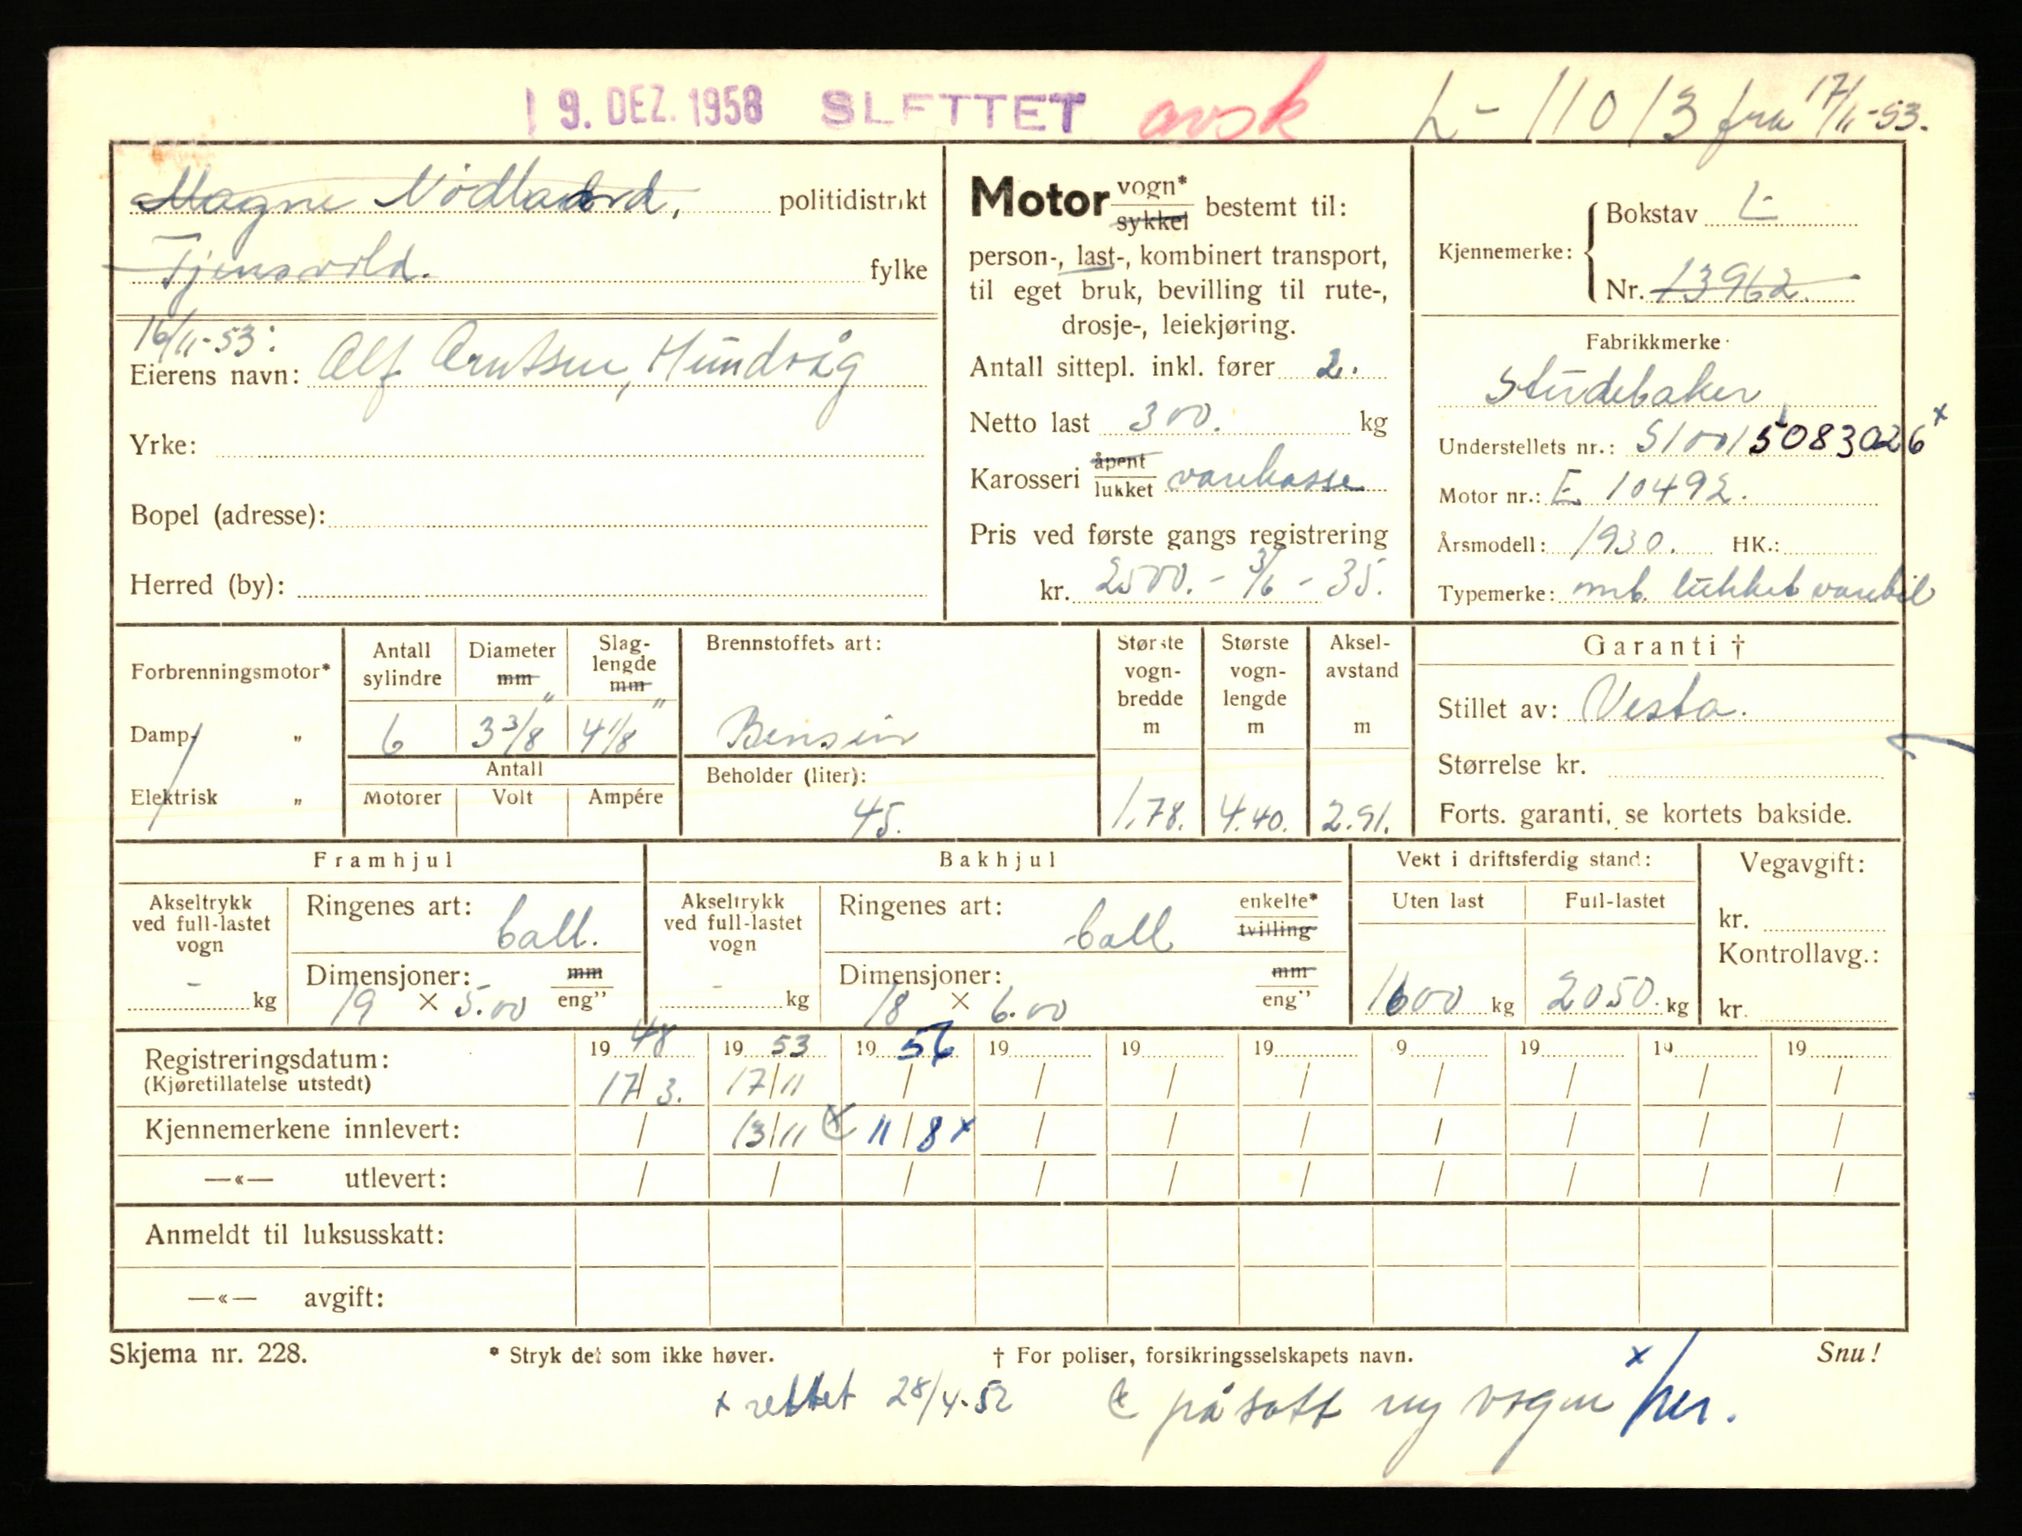 19. DEZ. 1958 SLETTET avsk L- 11013 fra 17/11-53.
Magne Nödland, politidistrikt
Tjensvold. fylke
16/11-53:
Eierens navn: Alf Arntsen, Hundvåg
Yrke:
Bopel (adresse):
Herred (by):
Motor vogn* sykkel bestemt til:
person-, last-, kombinert transport,
til eget bruk, bevilling til rute-,
drosje-, leiekjøring.
Antall sittepl. inkl. fører 2.
Netto last 300. kg
Karosseri åpent lukket varekasse
Pris ved første gangs registrering
kr. 2500.- 3/6 - 35.
Kjennemerke: Bokstav L-
Nr. 13962.
Fabrikkmerke
Studebaker
Understellets nr.: 51001 5083026 x
Motor nr.: E 10492.
Årsmodell: 1930. HK.:
Typemerke: mrk. lukket varebil
Forbrenningsmotor*
Damp- „
Elektrisk „
Antall sylindre 6
Diameter mm " 3 3/8
Slaglengde mm " 4 1/8
Antall
Motorer Volt Ampére
Brennstoffets art:
Bensin
Beholder (liter):
45.
Største vognbredde m 1.78.
Største vognlengde m 4.40.
Akselavstand m 2.91.
Garanti †
Stillet av: Vesta.
Størrelse kr.
Forts. garanti, se kortets bakside.
Framhjul
Akseltrykk ved full-lastet vogn - kg
Ringenes art: ball.
Dimensjoner: 19 × 5.00 mm eng"
Bakhjul
Akseltrykk ved full-lastet vogn - kg
Ringenes art: ball enkelte* tvilling
Dimensjoner: 18 × 6.00 mm eng"
Vekt i driftsferdig stand:
Uten last Full-lastet
1600 kg 2050. kg
Vegavgift:
kr.
Kontrollavg.:
kr.
Registreringsdatum: 1948 1953 1956 19 19 19 19 19 19 19
(Kjøretillatelse utstedt) 17/3. 17/11 / / / / / / / /
Kjennemerkene innlevert: / 13/11 11/8 x / / / / / / /
—«— utlevert: / / / / / / / / / /
Anmeldt til luksusskatt:
—«— avgift:
Skjema nr. 228. * Stryk det som ikke høver. † For poliser, forsikringsselskapets navn. Snu!
x rettet 28/4-52 påsatt ny vogn x her.